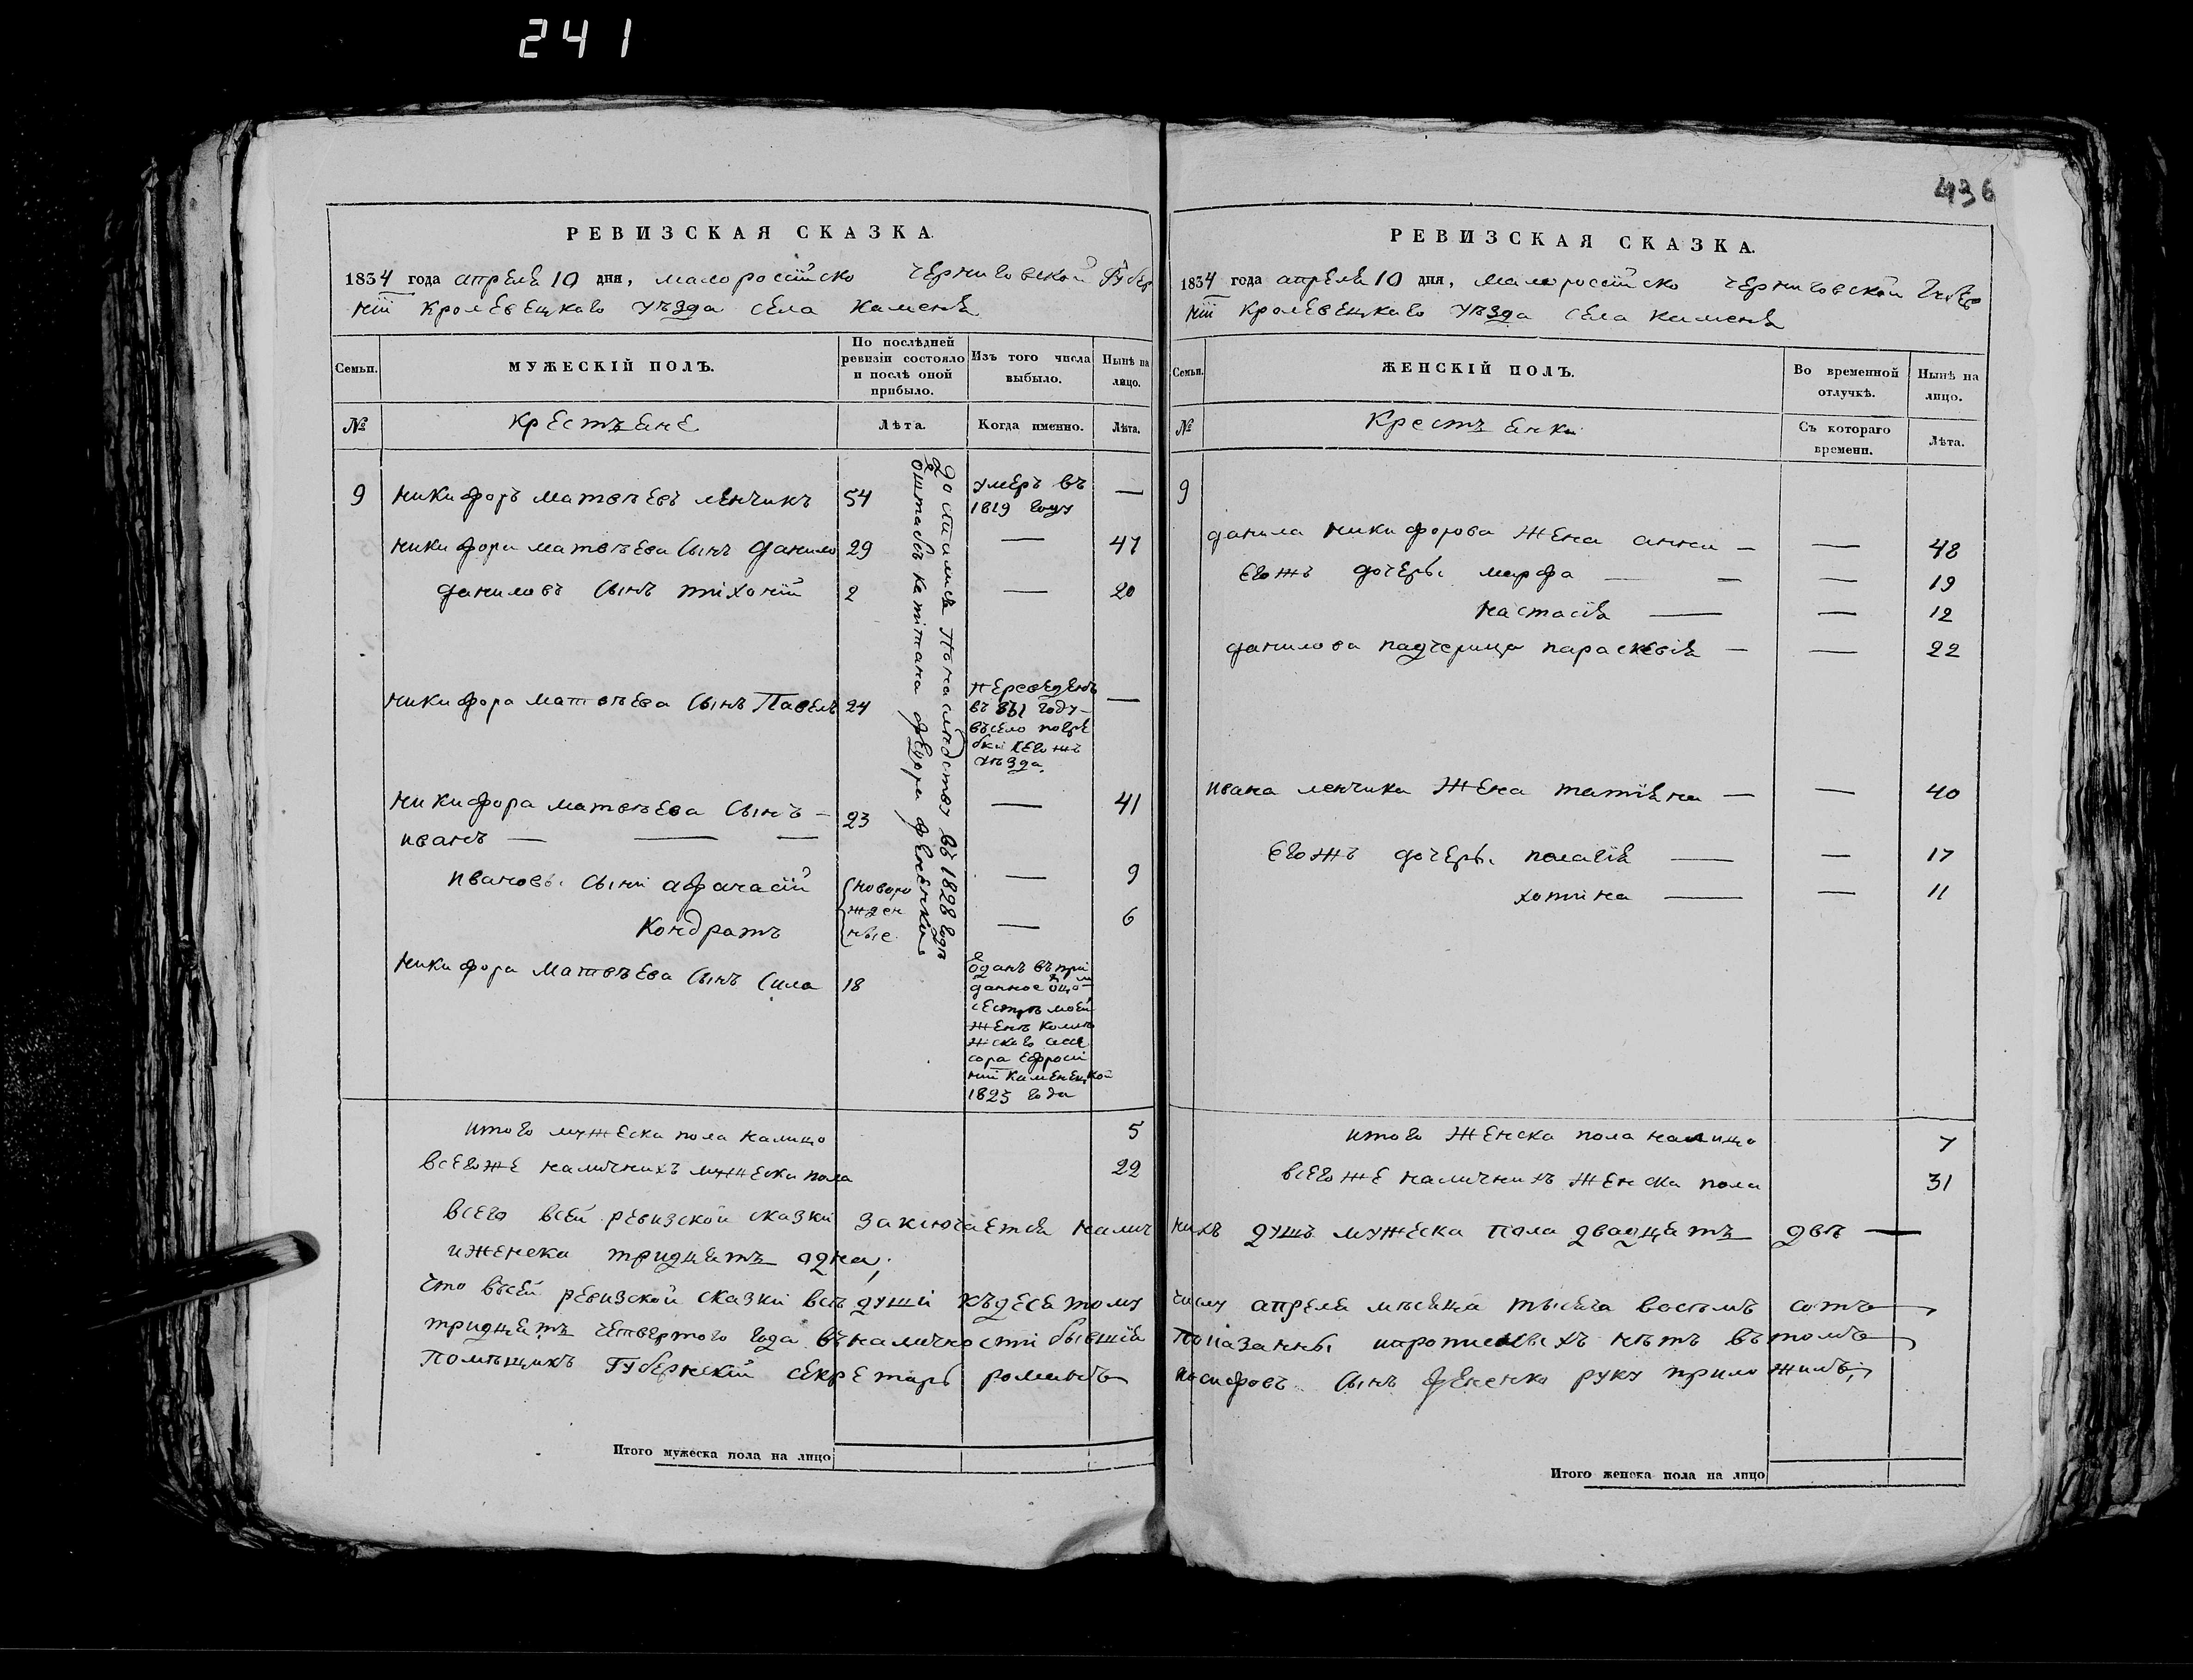 241
436
РЕВИЗСКАЯ СКАЗКА.
1834 года апреля 10 дня, малоросійско черниговской Губер
ніи Кролевецкаго уѣзда села Каменя
Семьи.
МУЖЕСКІЙ ПОЛЪ.
По послѣдней ревизіи состояло и послѣ оной прибыло.
Изъ того числа выбыло.
Нынѣ на лицо.
№
Крестъяне
Лѣта.
Когда именно.
Лѣта.
9 никифоръ матвѣевъ ленчикъ 54 умеръ въ 1819 году —
никифора матвѣева сынъ данило 29 — 47
даниловъ сынъ тіхоній 2 — 20
никифора матвѣева сынъ Павелъ 24 переведенъ
въ году
въ село
уѣзда. —
никифора матвѣева сынъ —
иванъ — — — 23 — 41
ивановы сыни афанасій — 9
Кондратъ — 6
{новоро
жден
ные
никифора матвѣева сынъ сила 18
данъ въ при
даное
сестрѣ моей
женѣ
сора Ефросі
ніи Каменецкой
1825 года
достался по наслѣдству въ 1828 годѣ
отъ штабсъ капітана фененка
итого мужеска пола налицо 5
всегоже наличнихъ мужеска пола 22
РЕВИЗСКАЯ СКАЗКА.
1834 года апреля 10 дня, малоросійско черниговской Губер
ніи Кролевецкаго уѣзда села Каменя
Семьи.
ЖЕНСКІЙ ПОЛЪ.
Во временной отлучкѣ.
Нынѣ на лицо.
№
Крестъянки
Съ котораго времени.
Лѣта.
9
данила никифорова жена анна — — 48
егожъ дочеры марфа — — — 19
настасія — — 12
данилова падчерица параскевія — — 22
ивана ленчика жена татіяна — — 40
егожъ дочеры палагія — — 17
хотина — — 11
итого женска пола налицо 7
всегоже наличнихъ женска пола 31
всего всей ревизской сказки заключается налич нихъ душъ мужеска пола двадцатъ двѣ —
иженска тридцятъ одна;
что въсей ревизской сказкі всѣ душі къдесятому числу апреля мѣсяца тысяча восемъ сотъ
тридцятъ четвертого года въналичності бывшія показанны ипрописныхъ нѣтъ въ томъ
Помѣщикъ Губернскій секретарь романъ иосифовъ сынъ фененко руку приложилъ;
Итого мужеска пола на лицо
Итого женска пола на лицо